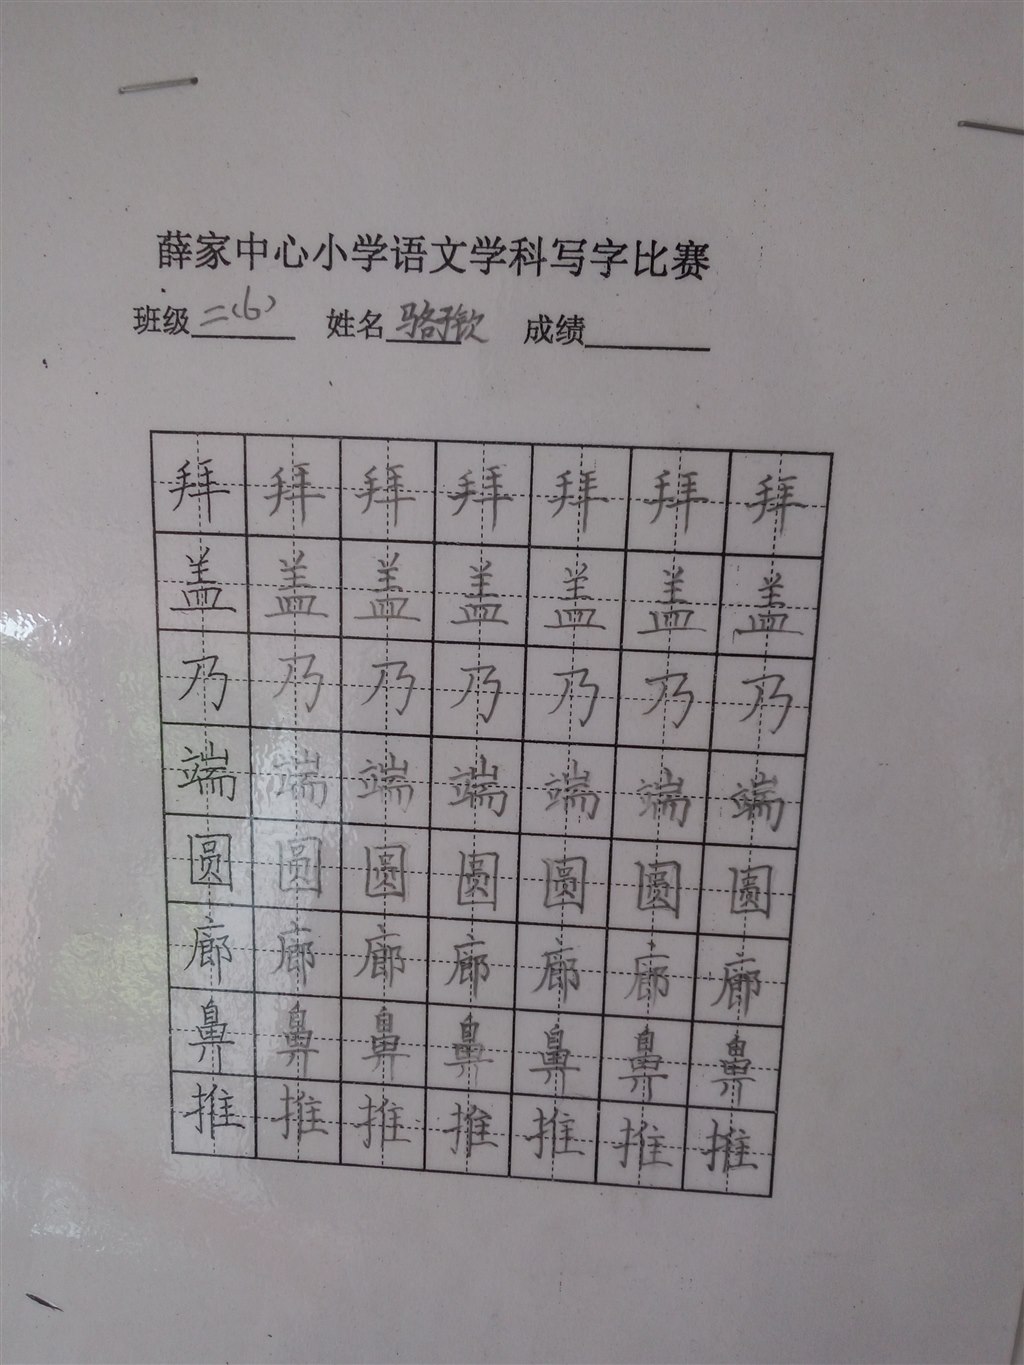 薛家中心小学语文学科写字比赛
班级 二(6) 姓名 骆予钦 成绩
拜拜拜拜拜拜拜
盖盖盖盖盖盖盖
乃乃乃乃乃乃乃
端端端端端端端
圆圆圆圆圆圆圆
廊廊廊廊廊廊廊
鼻鼻鼻鼻鼻鼻鼻
推推推推推推推